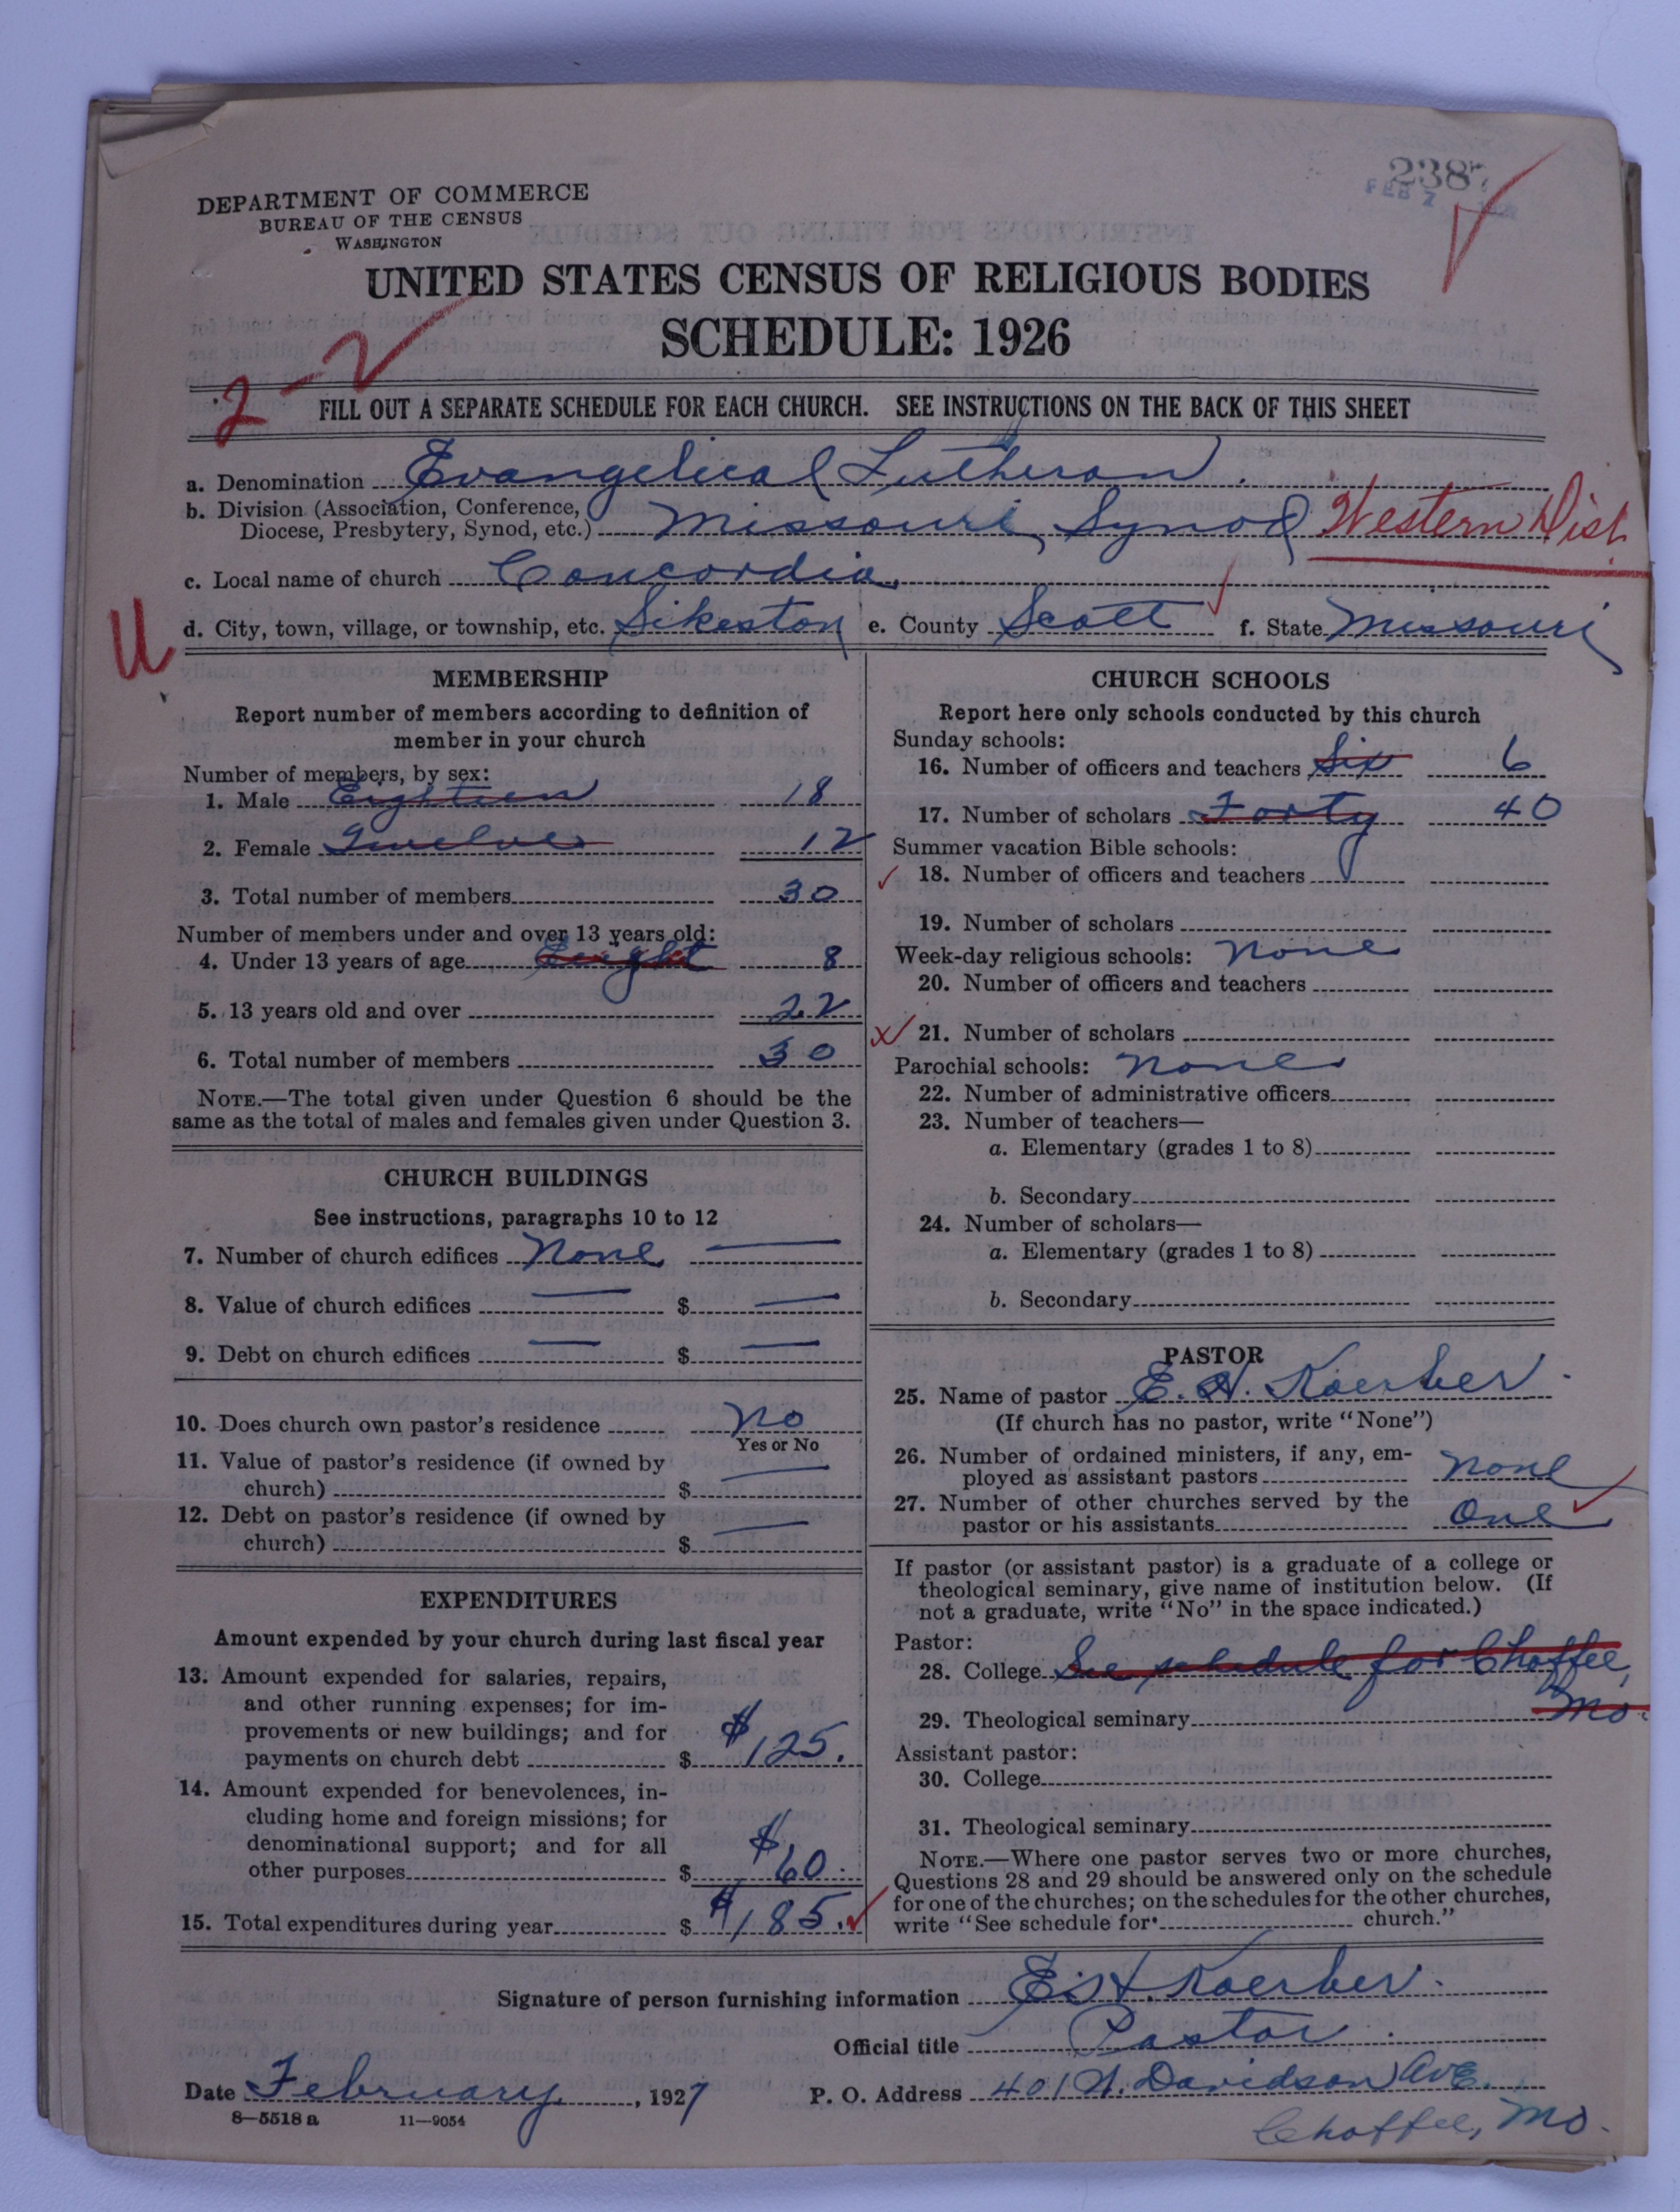 2387
FEB 7 1927
DEPARTMENT OF COMMERCE
BUREAU OF THE CENSUS
WASHINGTON
UNITED STATES CENSUS OF RELIGIOUS BODIES
SCHEDULE: 1926
2-2
FILL OUT A SEPARATE SCHEDULE FOR EACH CHURCH. SEE INSTRUCTIONS ON THE BACK OF THIS SHEET
a. Denomination Evangelical Lutheran.
b. Division (Association, Conference,
Diocese, Presbytery, Synod, etc.) Missouri Synod Western Dist.
c. Local name of church Concordia
d. City, town, village, or township, etc. Sikeston e. County Scott f. State Missouri
MEMBERSHIP
Report number of members according to definition of
member in your church
Number of members, by sex:
1. Male Eighteen 18
2. Female Twelve 12
3. Total number of members 30
Number of members under and over 13 years old:
4. Under 13 years of age Eight 8
5. 13 years old and over 22
6. Total number of members 30
NOTE.—The total given under Question 6 should be the
same as the total of males and females given under Question 3.
CHURCH BUILDINGS
See instructions, paragraphs 10 to 12
7. Number of church edifices None —
8. Value of church edifices — $ —
9. Debt on church edifices — $ —
10. Does church own pastor's residence No
Yes or No
11. Value of pastor's residence (if owned by
church) $ —
12. Debt on pastor's residence (if owned by
church) $ —
EXPENDITURES
Amount expended by your church during last fiscal year
13. Amount expended for salaries, repairs,
and other running expenses; for im-
provements or new buildings; and for
payments on church debt $ $125.
14. Amount expended for benevolences, in-
cluding home and foreign missions; for
denominational support; and for all
other purposes $ $60.
15. Total expenditures during year $ $185.
CHURCH SCHOOLS
Report here only schools conducted by this church
Sunday schools:
16. Number of officers and teachers Six 6
17. Number of scholars Forty 40
Summer vacation Bible schools:
18. Number of officers and teachers
19. Number of scholars
Week-day religious schools: None
20. Number of officers and teachers
21. Number of scholars
Parochial schools: None
22. Number of administrative officers
23. Number of teachers—
a. Elementary (grades 1 to 8)
b. Secondary
24. Number of scholars—
a. Elementary (grades 1 to 8)
b. Secondary
PASTOR
25. Name of pastor E. H. Koerber.
(If church has no pastor, write "None")
26. Number of ordained ministers, if any, em-
ployed as assistant pastors None
27. Number of other churches served by the
pastor or his assistants One
If pastor (or assistant pastor) is a graduate of a college or
theological seminary, give name of institution below. (If
not a graduate, write "No" in the space indicated.)
Pastor:
28. College See schedule for Chaffee,
Mo.
29. Theological seminary
Assistant pastor:
30. College
31. Theological seminary
NOTE.—Where one pastor serves two or more churches,
Questions 28 and 29 should be answered only on the schedule
for one of the churches; on the schedules for the other churches,
write "See schedule for church."
Signature of person furnishing information E. H. Koerber.
Official title Pastor.
Date February, 1927 P. O. Address 401 N. Davidson Ave.
8—5518a 11—9054
Chaffee, Mo.